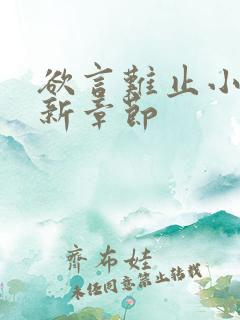 欲言難止小
新章節
齊布娃
未經同意禁止轉載